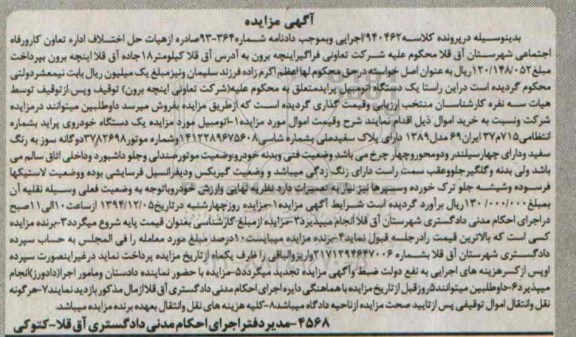 آگهی مزایده
بدینوسیله درپرونده کلاسه۹۴۰۴۶۲اجرایی وبموجب دادنامه شماره۳۶۴-۹۳صادره ازهیات حل اختلاف اداره تعاون کارورفاه
اجتماعی شهرستان آق قلا محکوم علیه شرکت تعاونی فراگیراینچه برون به آدرس آق قلا کیلومتر۱۸جاده آق قلا اینچه برون بپرداخت
مبلغ۱۲۰/۱۴۸/۰۵۲ریال به عنوان اصل خواسته درحق محکوم لهااعظم اکرم زاده فرزند سلیمان ونیزمبلغ یک میلیون ریال بابت نیمعشردولتی
محکوم گردیده است دراین راستا یک دستگاه اتومبیل پرایدمتعلق به محکوم علیه(شرکت تعاونی اینچه برون) توقیف وپس ازتوقیف توسط
هیات سه نفره کارشناسان منتخب ارزیابی وقیمت گذاری گردیده است که ازطریق مزایده بفروش میرسد داوطلبین میتوانند درمزایده
شرکت ونسبت به خرید اموال ذیل اقدام نمایند شرح وقیمت اموال مورد مزایده۱-اتومبیل مورد مزایده یک دستگاه خودروی پراید بشماره
انتظامی۷۱۵م۳۷ایران۶۹ مدل۱۳۸۹ دارای پلاک سفیدملی بشماره شاسی۱۴۱۲۲۸۹۶۷۵۶۰۸وشماره موتور۳۷۸۲۶۹۸دوگانه سوز به رنگ
سفید ودارای چهارسیلندر ودومحوروچهار چرخ می باشد وضعیت فنی وبدنه خودرووضعیت موتورصندلی وجلو داشبورد وداخلی اتاق سالم می
باشد ولی بدنه وگلگیرجلووعقب سمت راست دارای زنگ زدگی میباشد و وضعیت گیربکس ودیفرانسیل فرسایشی بوده ووضعیت لاستیکها
فرسوده وشیشه جلو ترک خورده وسپرها نیز نیاز به تعمیرات دارد نظریه نهایی وارزش خودروباتوجه به وضعیت فعلی وسیله نقلیه آن
بمبلغ۱۳۰/۰۰۰/۰۰۰ریال برآورد گردیده است شرایط آگهی مزایده۱-مزایده روزچهارشنبه درتاریخ۱۳۹۴/۱۲/۰۵ ازساعت۱۰الی۱۱صبح
دراجرای احکام مدنی دادگستری شهرستان آق قلاانجام میپذیرد۲-مزایده ازمبلغ کارشناسی بعنوان قیمت پایه شروع میگردد۳-برنده مزایده
کسی است که بالاترین قیمت رادرجلسه قبول نماید۴-برنده مزایده میبایست۱۰درصد مبلغ مورد معامله را فی المجلس به حساب سپرده
دادگستری شهرستان آق قلا بشماره ۲۱۷۱۲۹۴۶۴۷۰۰۶واریزوالباقی را ظرف یکماه ازتاریخ مزایده پرداخت نماید درغیراینصورت سپرده
اوپس ازکسرهزینه های اجرایی به نفع دولت ضبط وآگهی مزایده تجدید میگردد۵-مزایده با حضور نماینده دادستان ومامور اجرا(دادورز)انجام
میپذیرد۶-داوطلبین میتوانند۵روزقبل ازتاریخ مزایده باهماهنگی دایره اجرای احکام مدنی دادگستری آق قلاازمال مذکور بازدید نمایند۷-هرگونه
نقل وانتقال اموال توقیفی پس ازتایید صحت مزایده ازناحیه دادگاه میباشد۸-کلیه هزینه های نقل وانتقال بعهده برنده مزایده میباشد.
۴۵۶۸-مدیردفتراجرای احکام مدنی دادگستری آق قلا-کتوکی